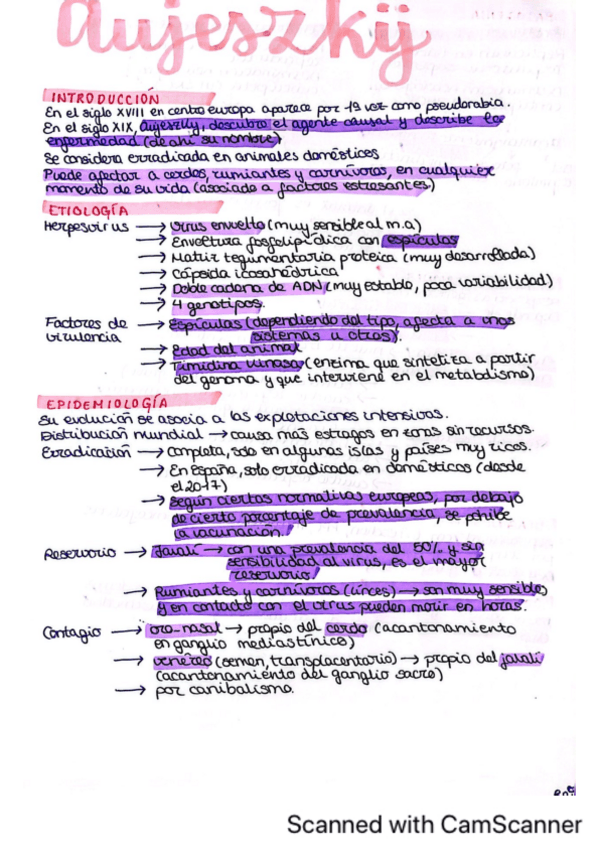 Aujeszkij
INTRODUCCIÓN
En el siglo XVIII en centro europa aparece por 1ª vez como pseudorabia.
En el siglo XIX, Aujeszky, descubre el agente causal y describe la
enfermedad (de ahí su nombre)
Se considera erradicada en animales domésticos
Puede afectar a cerdos, rumiantes y carnívoros, en cualquier
momento de su vida (asociado a factores estresantes)
ETIOLOGÍA
Herpesvirus → Virus envuelto (muy sensible al m.a)
→ Envoltura fosfolipídica con espículas
→ Matriz tegumentaria proteica (muy desarrollada)
→ Cápsida icosahédrica
→ Doble cadena de ADN (muy estable, poca variabilidad)
→ 4 genotipos.
Factores de → Espículas (dependiendo del tipo, afecta a unos
virulencia sistemas u otros).
→ Edad del animal
→ Timidina kinasa (enzima que sintetiza a partir
del genoma y que interviene en el metabolismo)
EPIDEMIOLOGÍA
Su evolución se asocia a las explotaciones intensivas.
Distribución mundial → causa más estragos en zonas sin recursos.
Erradicación → completa, solo en algunas islas y países muy ricos.
→ En España, solo erradicada en domésticos (desde
el 2017)
→ Según ciertas normativas europeas, por debajo
de cierto porcentaje de prevalencia, se prohibe
la vacunación.
Reservorio → Jabalí → con una prevalencia del 50% y sin
sensibilidad al virus, es el mayor
reservorio.
→ Rumiantes y carnívoros (linces) → son muy sensibles
y en contacto con el virus pueden morir en horas.
Contagio → oro-nasal → propio del cerdo (acantonamiento
en ganglio mediastínico)
→ venéreo (semen, transplacentario) → propio del jabalí
(acantonamiento del ganglio sacro)
→ por canibalismo.
Scanned with CamScanner